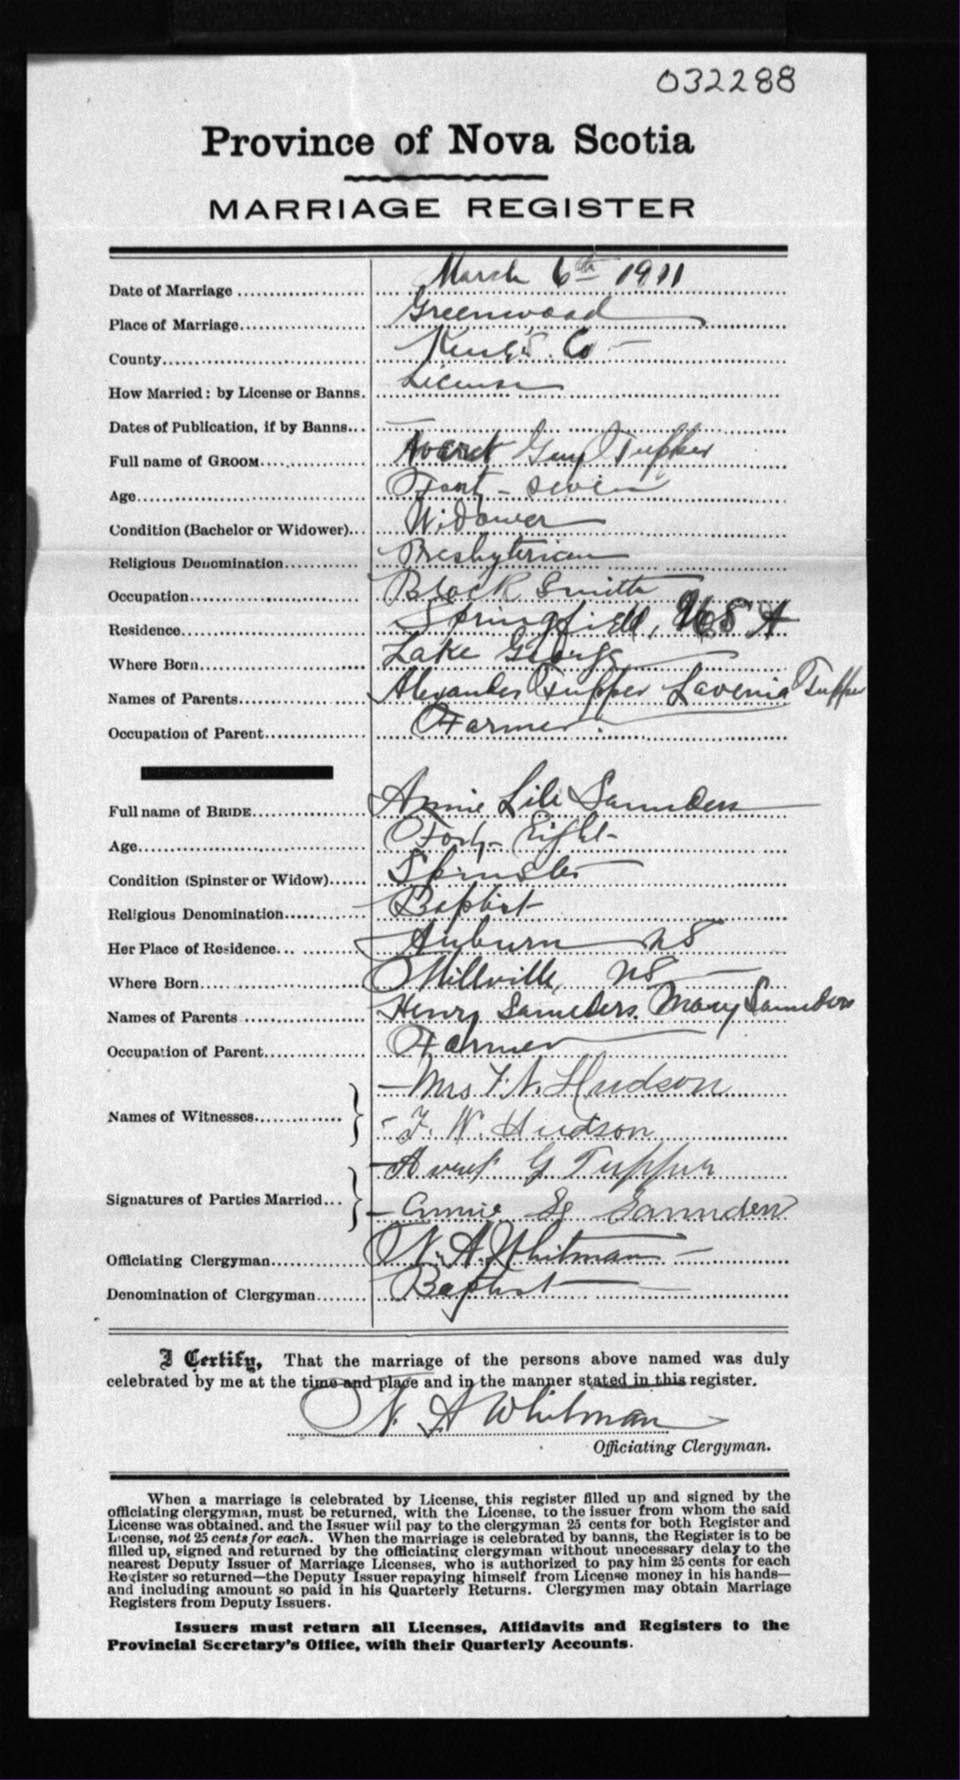 032288
Province of Nova Scotia
MARRIAGE REGISTER
Date of Marriage March 6th 1911
Place of Marriage Greenwood
County King's Co
How Married: by License or Banns. License
Dates of Publication, if by Banns
Full name of GROOM Guy Tupper
Age Forty-seven
Condition (Bachelor or Widower) Widower
Religious Denomination Presbyterian
Occupation Black Smith
Residence Springfield, USA
Where Born Lake George
Names of Parents Alexander Tupper Lavenia Tupper
Occupation of Parent Farmer
Full name of BRIDE Annie Lili Saunders
Age Forty-Eight
Condition (Spinster or Widow) Spinster
Religious Denomination Baptist
Her Place of Residence Auburn NS
Where Born Millville, NS
Names of Parents Henry Saunders. Mary Saunders
Occupation of Parent Farmer
Names of Witnesses
Mrs F. N. Hudson
F. W. Hudson
Signatures of Parties Married
G Tupper
Annie Saunders
Officiating Clergyman N. A. Whitman
Denomination of Clergyman Baptist
I Certify, That the marriage of the persons above named was duly
celebrated by me at the time and place and in the manner stated in this register.
N. A Whitman
Officiating Clergyman.
When a marriage is celebrated by License, this register filled up and signed by the
officiating clergyman, must be returned, with the License, to the issuer from whom the said
License was obtained, and the Issuer will pay to the clergyman 25 cents for both Register and
License, not 25 cents for each. When the marriage is celebrated by banns, the Register is to be
filled up, signed and returned by the officiating clergyman without unnecessary delay to the
nearest Deputy Issuer of Marriage Licenses, who is authorized to pay him 25 cents for each
Register so returned—the Deputy Issuer repaying himself from License money in his hands—
and including amount so paid in his Quarterly Returns. Clergymen may obtain Marriage
Registers from Deputy Issuers.
Issuers must return all Licenses, Affidavits and Registers to the
Provincial Secretary's Office, with their Quarterly Accounts.